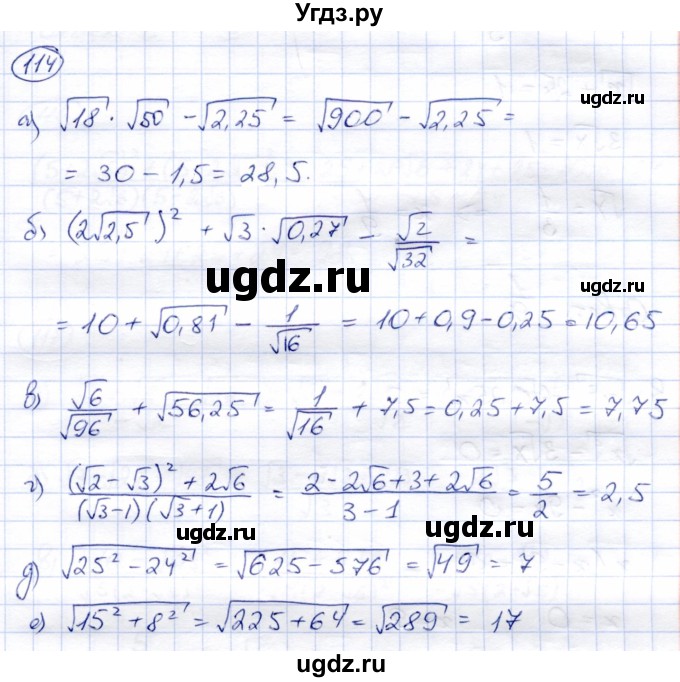 Угдз.ру
114
ugdz.ru
а) √18 · √50 − √2,25 = √900 − √2,25 =
= 30 − 1,5 = 28,5.
ugdz.ru
б) (2√2,5)² + √3 · √0,27 − √2/√32 =
ugdz.ru
= 10 + √0,81 − 1/√16 = 10 + 0,9 − 0,25 = 10,65
в) √6/√96 + √56,25 = 1/√16 + 7,5 = 0,25 + 7,5 = 7,75
ugdz.ru ugdz.ru
г) ((√2 − √3)² + 2√6)/((√3−1)(√3+1)) = (2 − 2√6 + 3 + 2√6)/(3 − 1) = 5/2 = 2,5
ugdz.ru
д) √25² − 24² = √625 − 576 = √49 = 7
ugdz.ru
е) √15² + 8² = √225 + 64 = √289 = 17
ugdz.ru